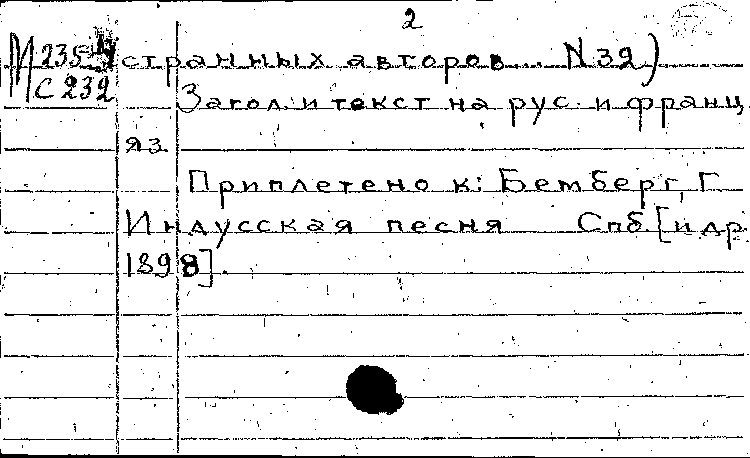 2
М 235-4 странных авторов... N 32)
С 232
Загол. и текст на рус. и франц
яз.
Приплетено к: Бемберг, Г
Индусская песня Спб. [и др
1898].